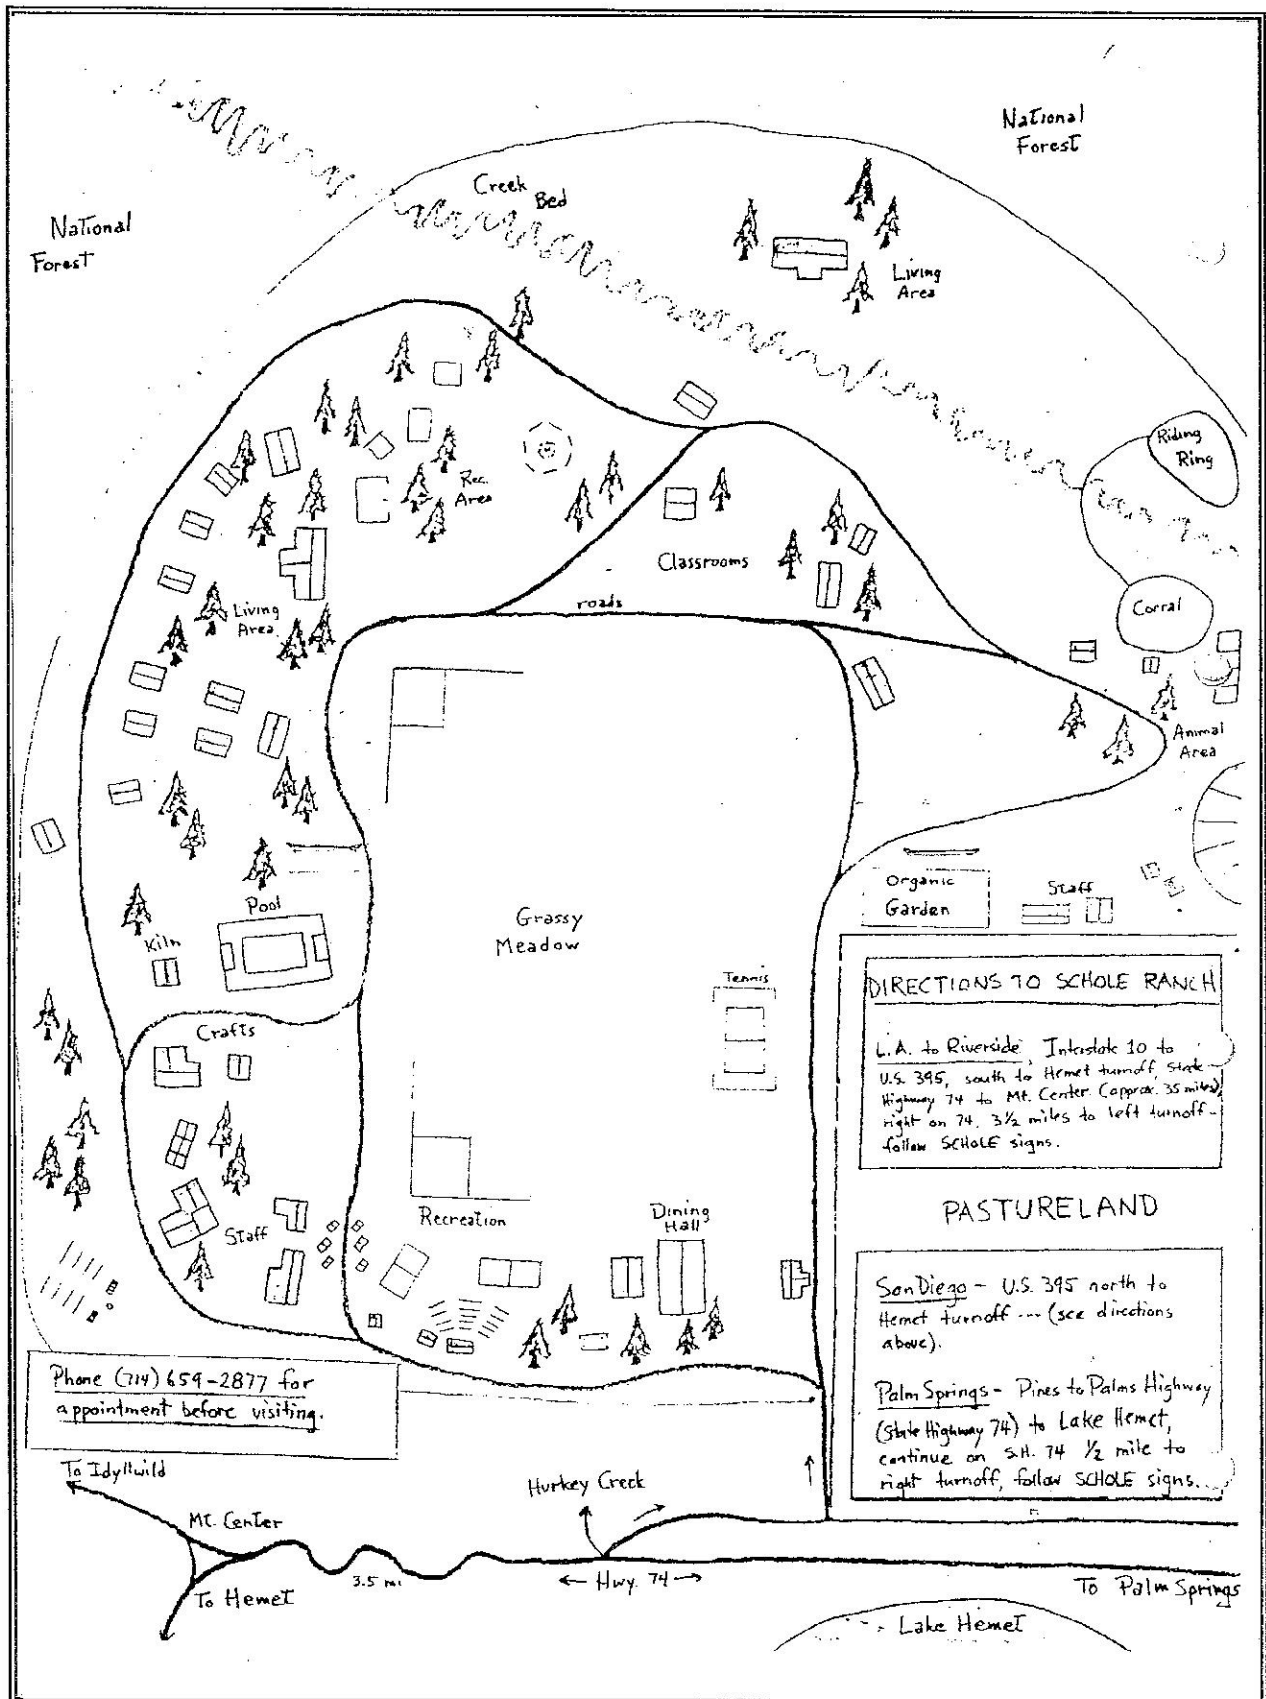 National
Forest
National
Forest
Creek
Bed
Living
Area
Riding
Ring
Rec.
Area
Classrooms
roads
Corral
Living
Area
Animal
Area
Organic
Garden
Staff
Pool
Kiln
Grassy
Meadow
Tennis
Crafts
DIRECTIONS TO SCHOLE RANCH
L.A. to Riverside, Interstate 10 to
U.S. 395, south to Hemet turnoff, State
Highway 74 to Mt. Center (approx. 35 miles),
right on 74, 3½ miles to left turnoff-
follow SCHOLE signs.
Staff
Recreation
Dining
Hall
PASTURELAND
San Diego - U.S. 395 north to
Hemet turnoff --- (see directions
above).
Palm Springs - Pines to Palms Highway
(State Highway 74) to Lake Hemet,
continue on S.H. 74 ½ mile to
right turnoff, follow SCHOLE signs.
Phone (714) 659-2877 for
appointment before visiting.
To Idyllwild
Hurkey Creek
Mt. Center
3.5 mi
← Hwy. 74 →
To Hemet
To Palm Springs
Lake Hemet